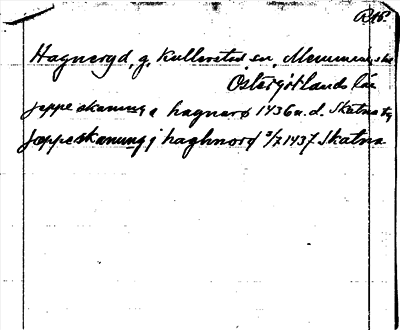 R 15.
Hagneryd, g, Kullerstad sn, Memmings hd
Östergötlands län
jeppe skanung i hagnerd 1436 a.d. Skatna
Jæppe skanung i haghnord 3/7 1437 Skatna